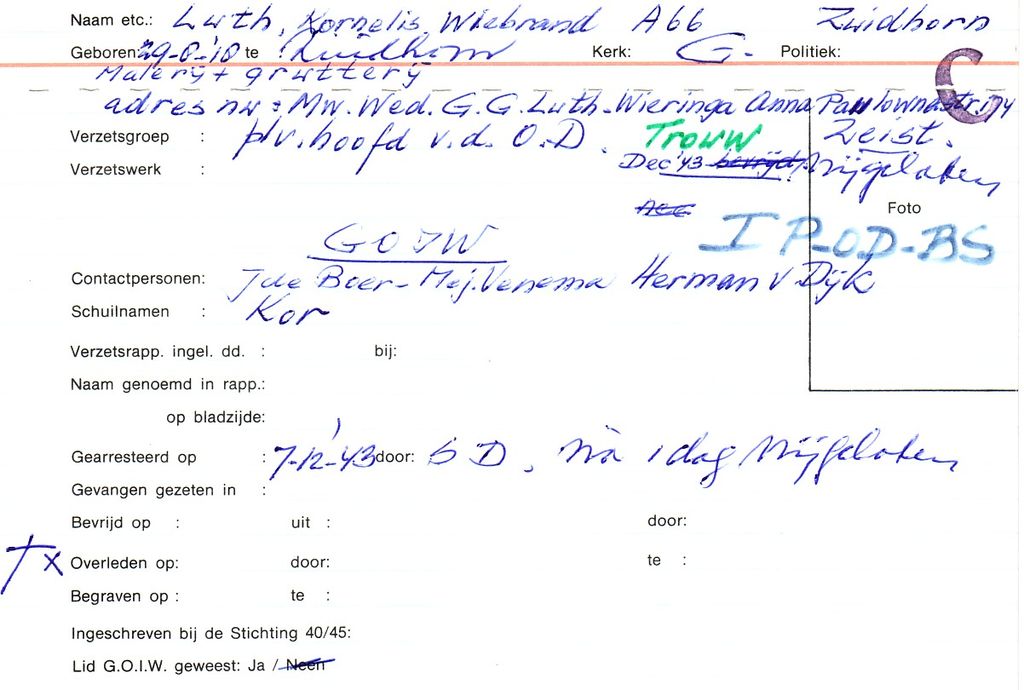 Naam etc.: Luth, Kornelis, Wiebrand A66 Zuidhorn
Geboren: 29-8-'18 te Zuidhorn Kerk: G. Politiek:
Malerij + grutterij
C
adres nu: Mw. Wed. G.G. Luth-Wieringa Anna
Verzetsgroep : plv. hoofd v.d. O.D. Trouw Zeist.
Verzetswerk : Dec '43 bevrijd! Vrijgelaten
Foto
I P-O.D-BS
GOIW
Contactpersonen: J de Boer - Mej. Venema Herman v Dijk
Schuilnamen : Kor
Verzetsrapp. ingel. dd. : bij:
Naam genoemd in rapp.:
op bladzijde:
Gearresteerd op : 7-12-'43 door: SD. na 1 dag vrijgelaten
Gevangen gezeten in :
Bevrijd op : uit : door:
† x Overleden op: door: te :
Begraven op : te :
Ingeschreven bij de Stichting 40/45:
Lid G.O.I.W. geweest: Ja / Neen